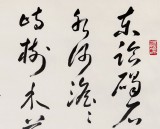 东临碣石
水何澹々
峙树木丛